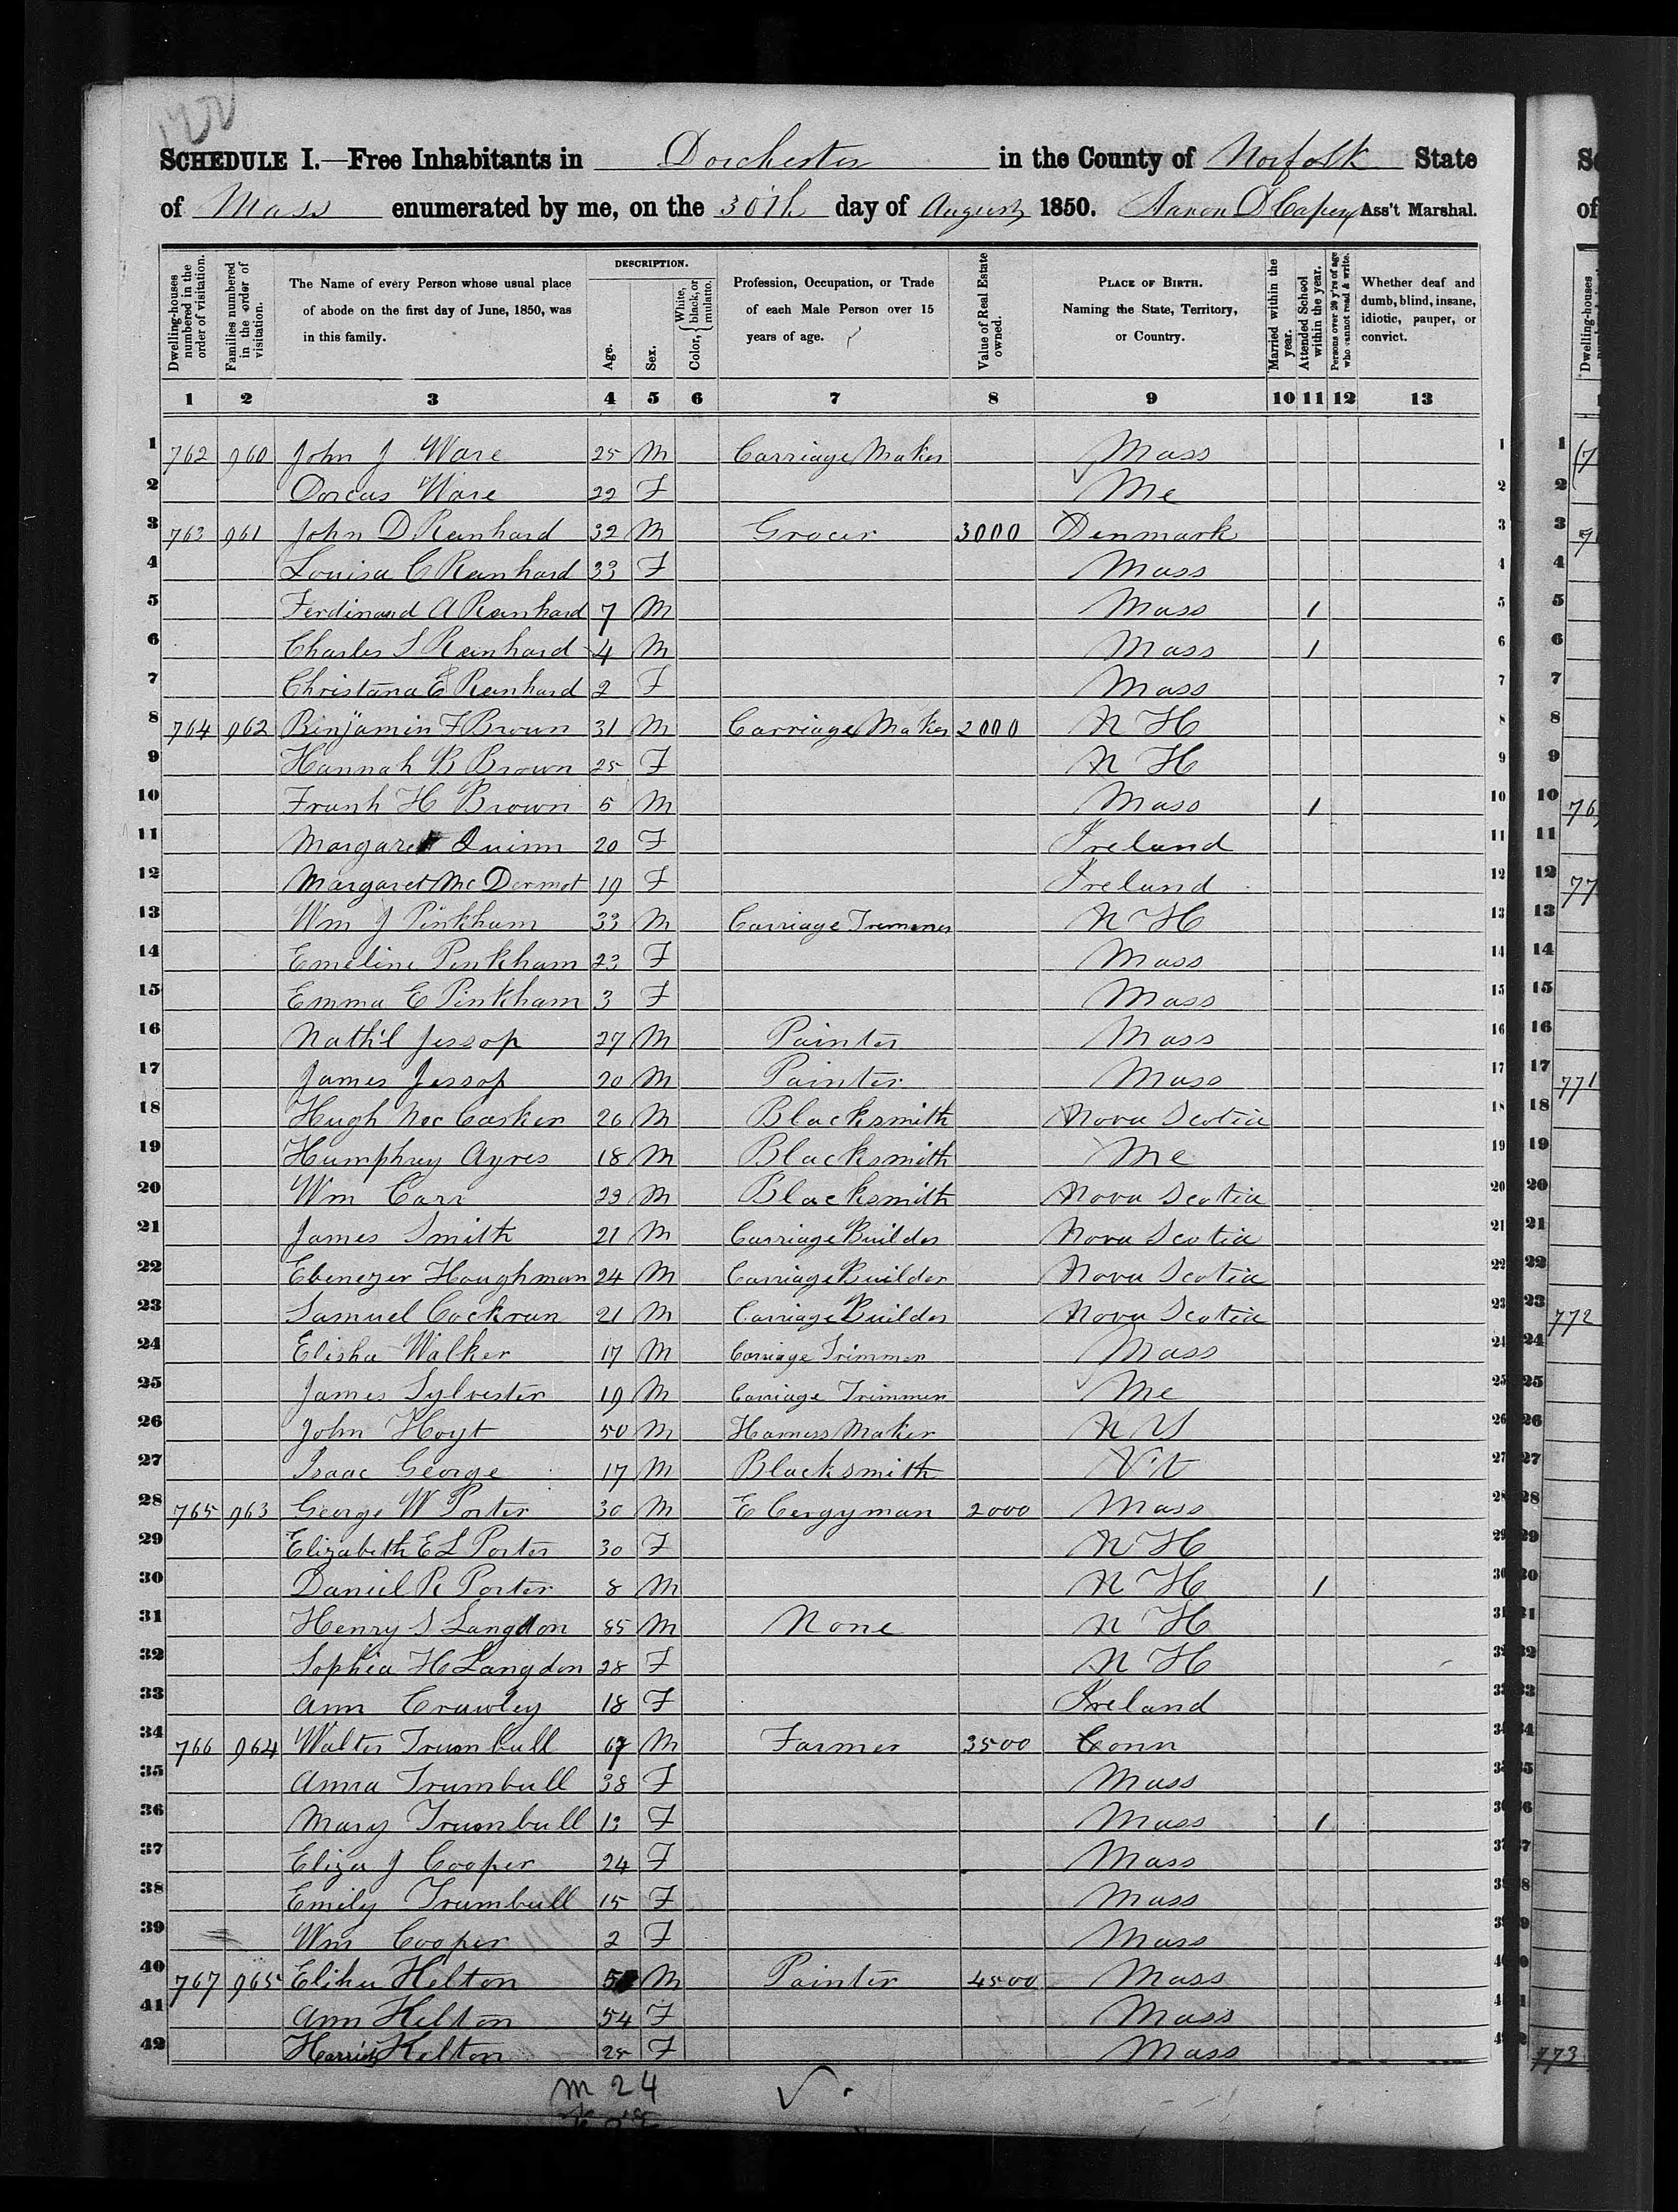 SCHEDULE I.—Free Inhabitants in Dorchester in the County of Norfolk State
of Mass enumerated by me, on the 30th day of August 1850. Aaron D Capen Ass't Marshal.
Dwelling-houses numbered in the order of visitation. Families numbered in the order of visitation. The Name of every Person whose usual place of abode on the first day of June, 1850, was in this family. DESCRIPTION. Age. Sex. Color, White, black, or mulatto. Profession, Occupation, or Trade of each Male Person over 15 years of age. Value of Real Estate owned. PLACE OF BIRTH. Naming the State, Territory, or Country. Married within the year. Attended School within the year. Persons over 20 y'rs of age who cannot read & write. Whether deaf and dumb, blind, insane, idiotic, pauper, or convict.
1 2 3 4 5 6 7 8 9 10 11 12 13
1 762 960 John J Ware 25 M Carriage Maker Mass 1
2 Dorcas Ware 22 F Me 2
3 763 961 John D Reinhard 32 M Grocer 3000 Denmark 3
4 Louisa C Reinhard 33 F Mass 4
5 Ferdinand A Reinhard 7 M Mass 1 5
6 Charles S Reinhard 4 M Mass 1 6
7 Christana E Reinhard 2 F Mass 7
8 764 962 Binjamin F Brown 31 M Carriage Maker 2000 N H 8
9 Hannah B Brown 25 F N H 9
10 Frank H Brown 5 M Mass 1 10
11 Margaret Quinn 20 F Ireland 11
12 Margaret McDermot 19 F Ireland 12
13 Wm J Pinkham 33 M Carriage Trimmer N H 13
14 Emeline Pinkham 23 F Mass 14
15 Emma E Pinkham 3 F Mass 15
16 Nath'l Jessop 27 M Painter Mass 16
17 James Jessop 20 M Painter Mass 17
18 Hugh Mc Casker 26 M Blacksmith Nova Scotia 18
19 Humphrey Ayres 18 M Blacksmith Me 19
20 Wm Carr 23 M Blacksmith Nova Scotia 20
21 James Smith 21 M Carriage Builder Nova Scotia 21
22 Ebenezer Houghman 24 M Carriage Builder Nova Scotia 22
23 Samuel Cockran 21 M Carriage Builder Nova Scotia 23
24 Elisha Walker 17 M Carriage Trimmer Mass 24
25 James Sylvester 19 M Carriage Trimmer Me 25
26 John Hoyt 50 M Harness Maker N Y 26
27 Isaac George 17 M Blacksmith Vt 27
28 765 963 George W Porter 30 M E Cergyman 2000 Mass 28
29 Elizabeth E L Porter 30 F N H 29
30 Daniel R Porter 8 M N H 1 30
31 Henry S Langdon 85 M None N H 31
32 Sophia H Langdon 28 F N H 32
33 Ann Crawley 18 F Ireland 33
34 766 964 Walter Trumbull 67 M Farmer 3500 Conn 34
35 Anna Trumbull 38 F Mass 35
36 Mary Trumbull 13 F Mass 1 36
37 Eliza J Cooper 24 F Mass 37
38 Emily Trumbull 15 F Mass 38
39 Wm Cooper 2 F Mass 39
40 767 965 Elihu Helton M Painter 4500 Mass
41 Ann Helton 54 F Mass
42 Harriet Helton 25 F Mass
M 24